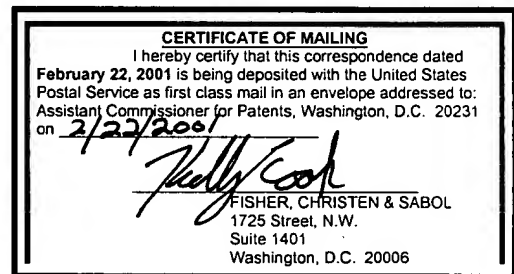 CERTIFICATE OF MAILING
I hereby certify that this correspondence dated
February 22, 2001 is being deposited with the United States
Postal Service as first class mail in an envelope addressed to:
Assistant Commissioner for Patents, Washington, D.C. 20231
on 2/22/2001
Kelly Cook
FISHER, CHRISTEN & SABOL
1725 Street, N.W.
Suite 1401
Washington, D.C. 20006